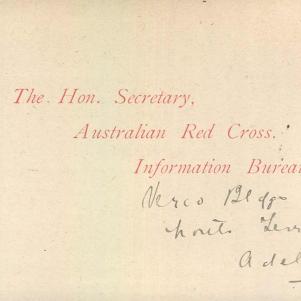 The Hon. Secretary,
Australian Red Cross.
Information Bureau
Verco Bldgs
North Terr
Adel